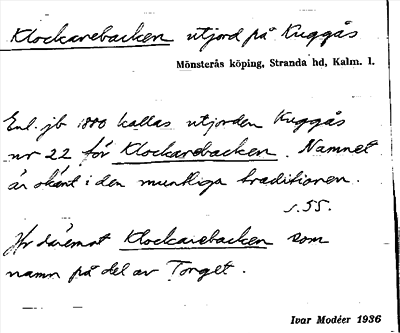 Klockarebacken utjord på Kuggås
Mönsterås köping, Stranda hd, Kalm. l.
Enl. jb 1880 kallas utjorden Kuggås
nr 22 för Klockarebacken. Namnet
är okänt i den muntliga traditionen.
s. 55.
Jfr däremot Klockarebacken som
namn på del av Torget.
Ivar Modéer 1936